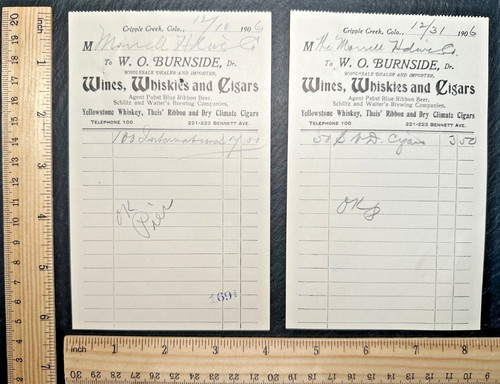 Cripple Creek, Colo., 12/10 1906
M Morrell Hdwe Co
To W. O. BURNSIDE, Dr.
WHOLESALE DEALER AND IMPORTER,
Wines, Whiskies and Cigars
Agent Pabst Blue Ribbon Beer,
Schlitz and Walter's Brewing Companies,
Yellowstone Whiskey, Theis' Ribbon and Dry Climate Cigars
TELEPHONE 100 221-223 BENNETT AVE.
100 International
OK
1691
Cripple Creek, Colo., 12/31 1906
M The Morrell Hdwe Co.
To W. O. BURNSIDE, Dr.
WHOLESALE DEALER AND IMPORTER,
Wines, Whiskies and Cigars
Agent Pabst Blue Ribbon Beer,
Schlitz and Walter's Brewing Companies,
Yellowstone Whiskey, Theis' Ribbon and Dry Climate Cigars
TELEPHONE 100 221-223 BENNETT AVE.
50 Cigars 3 50
OK
20 19 18 17 16 15 14 13 12 11 10 9 8 7 6 5 4 3 2 1
1 2 3 4 5 6 7
inch 1 2 3 4 5 6 7 8
30 29 28 27 26 25 24 23 22 21 20 19 18 17 16 15 14 13 12 11 10 9